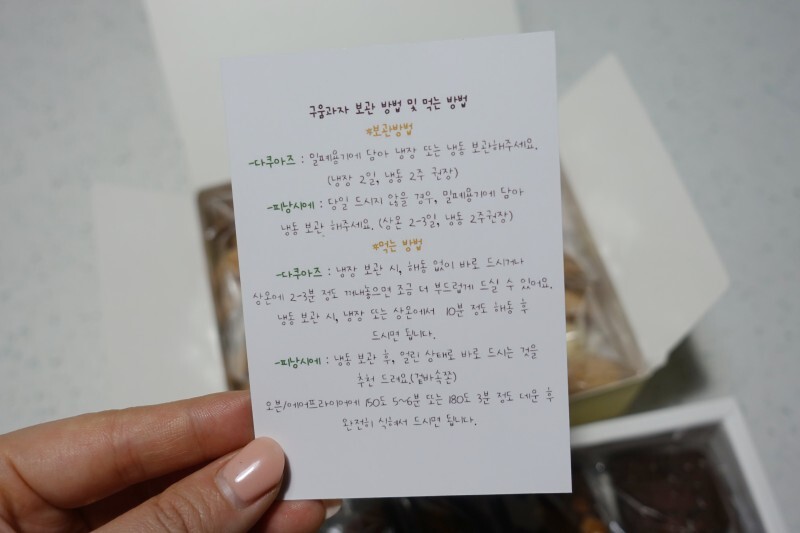 구움과자 보관 방법 및 먹는 방법
#보관방법
-다쿠아즈 : 밀폐용기에 담아 냉장 또는 냉동 보관해주세요.
(냉장 2일, 냉동 2주 권장)
-피낭시에 : 당일 드시지 않을 경우, 밀폐용기에 담아
냉동 보관 해주세요. (상온 2-3일, 냉동 2주권장)
#먹는 방법
-다쿠아즈 : 냉장 보관 시, 해동 없이 바로 드시거나
상온에 2-3분 정도 꺼내놓으면 조금 더 부드럽게 드실 수 있어요.
냉동 보관 시, 냉장 또는 상온에서 10분 정도 해동 후
드시면 됩니다.
-피낭시에 : 냉동 보관 후, 얼린 상태로 바로 드시는 것을
추천 드려요.(겉바속쫀)
오븐/에어프라이어에 150도 5~6분 또는 180도 3분 정도 데운 후
완전히 식혀서 드시면 됩니다.